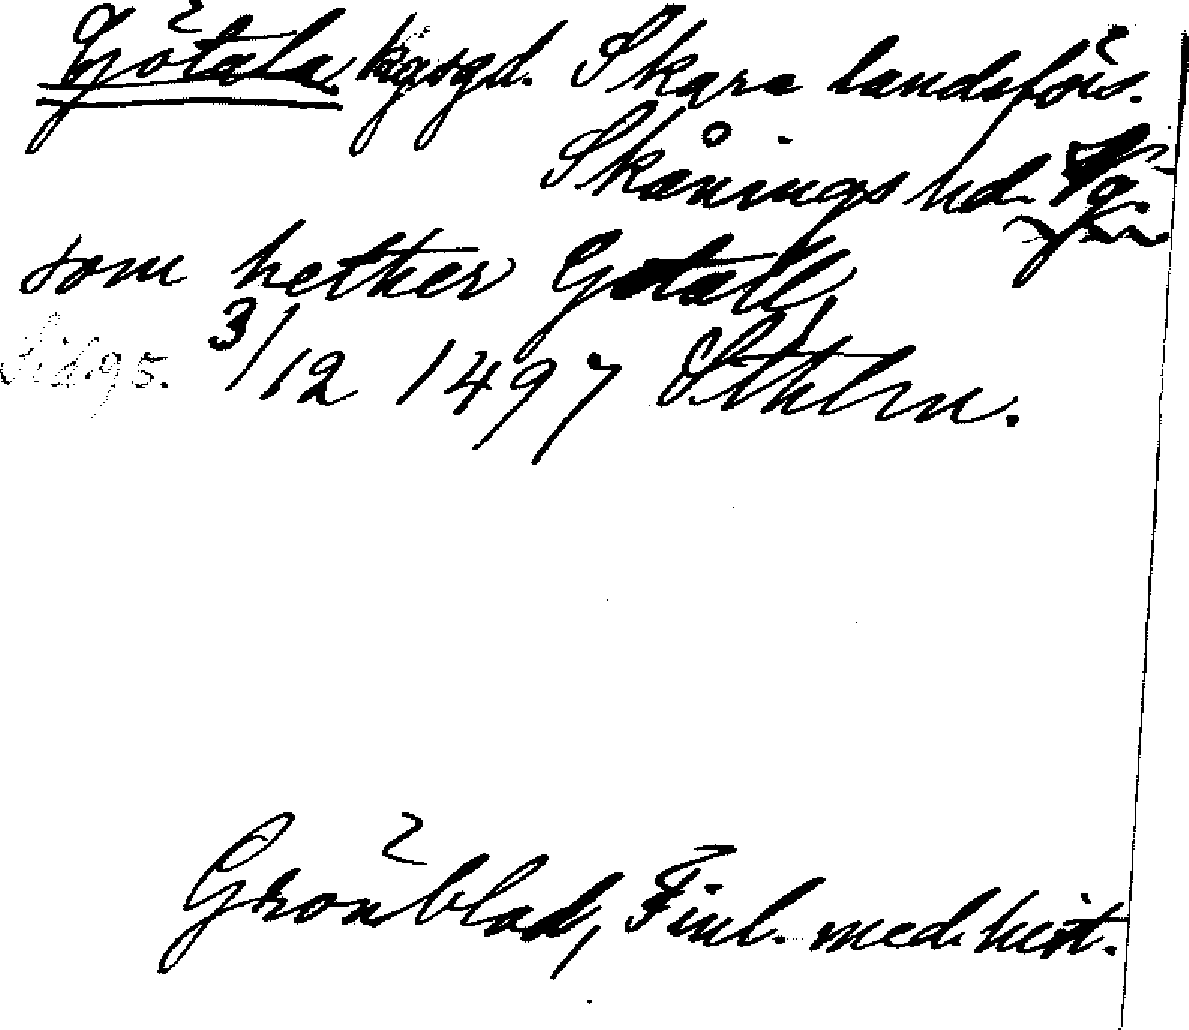 Götala kgsgd. Skara landsförs.
Skånings hd. Vg.
som hether Gotall,
Sid. 95. 3/12 1497 Sthlm.
Grönblad, Finl. med. hist.